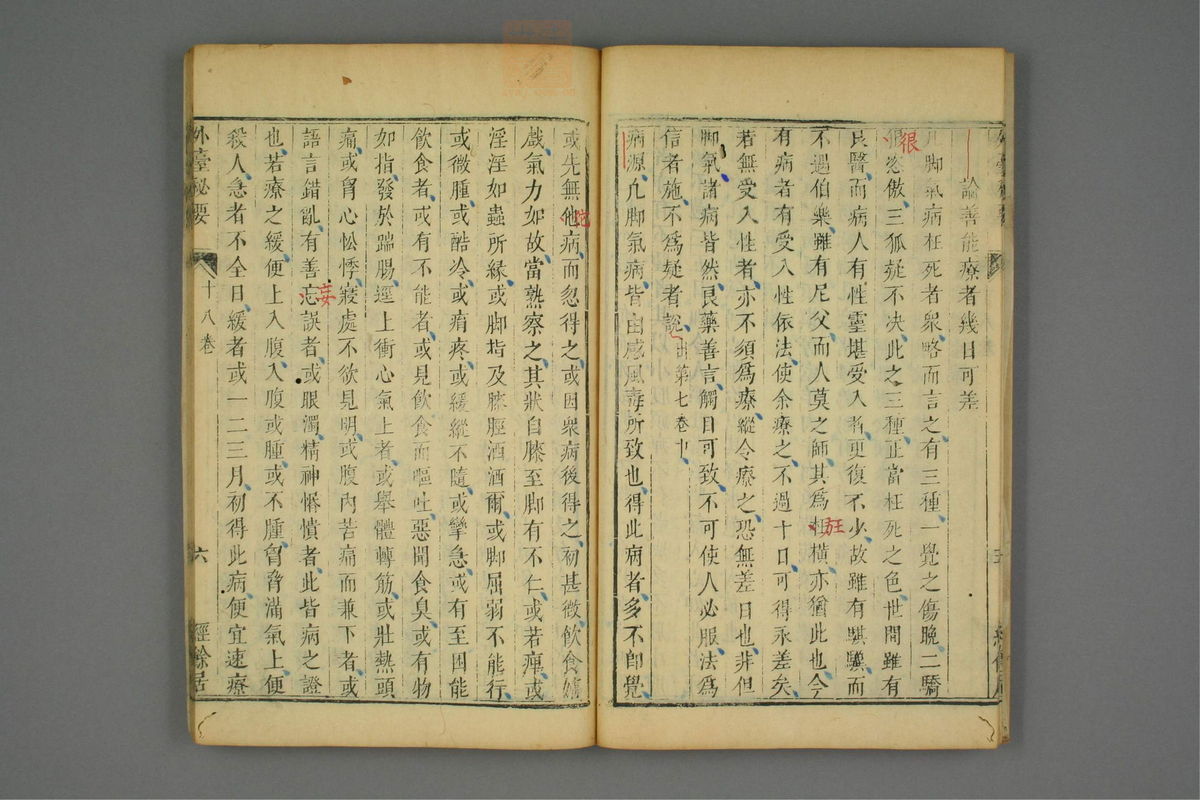 論善能療者幾日可差
凡脚氣病枉死者衆略而言之有三種一覺之傷晚二驕
很恣傲三狐疑不决此之三種正當枉死之色世間雖有
良醫而病人有性靈堪受入者更復不少故雖有騏驥而
不遇伯樂雖有尼父而人莫之師其爲枉橫亦猶此也今
有病者有受入性依法使余療之不過十日可得永差矣
若無受入性者亦不須爲療縱令療之恐無差日也非但
脚氣諸病皆然良藥善言觸目可致不可使人必服法爲
信者施不爲疑者說出第七卷中
病源凡脚氣病皆由感風毒所致也得此病者多不卽覺
五
或先無他病而忽得之或因衆病後得之初甚微飲食嬉
戲氣力如故當熟察之其狀自膝至脚有不仁或若痺或
淫淫如蟲所緣或脚指及膝脛洒洒爾或脚屈弱不能行
或微腫或酷冷或痟疼或緩縱不隨或攣急或有至困能
飲食者或有不能者或見飲食而嘔吐惡聞食臭或有物
如指發於踹腸逕上衝心氣上者或舉體轉筋或壯熱頭
痛或胷心忪悸寢處不欲見明或腹內苦痛而兼下者或
語言錯亂有善忘誤者或眼濁精神惛憒者此皆病之證
也若療之緩便上入腹入腹或腫或不腫胷脅滿氣上便
殺人急者不全日緩者或一二三月初得此病便宜速療
外臺秘要 十八卷 六 經餘居
很
枉
妄